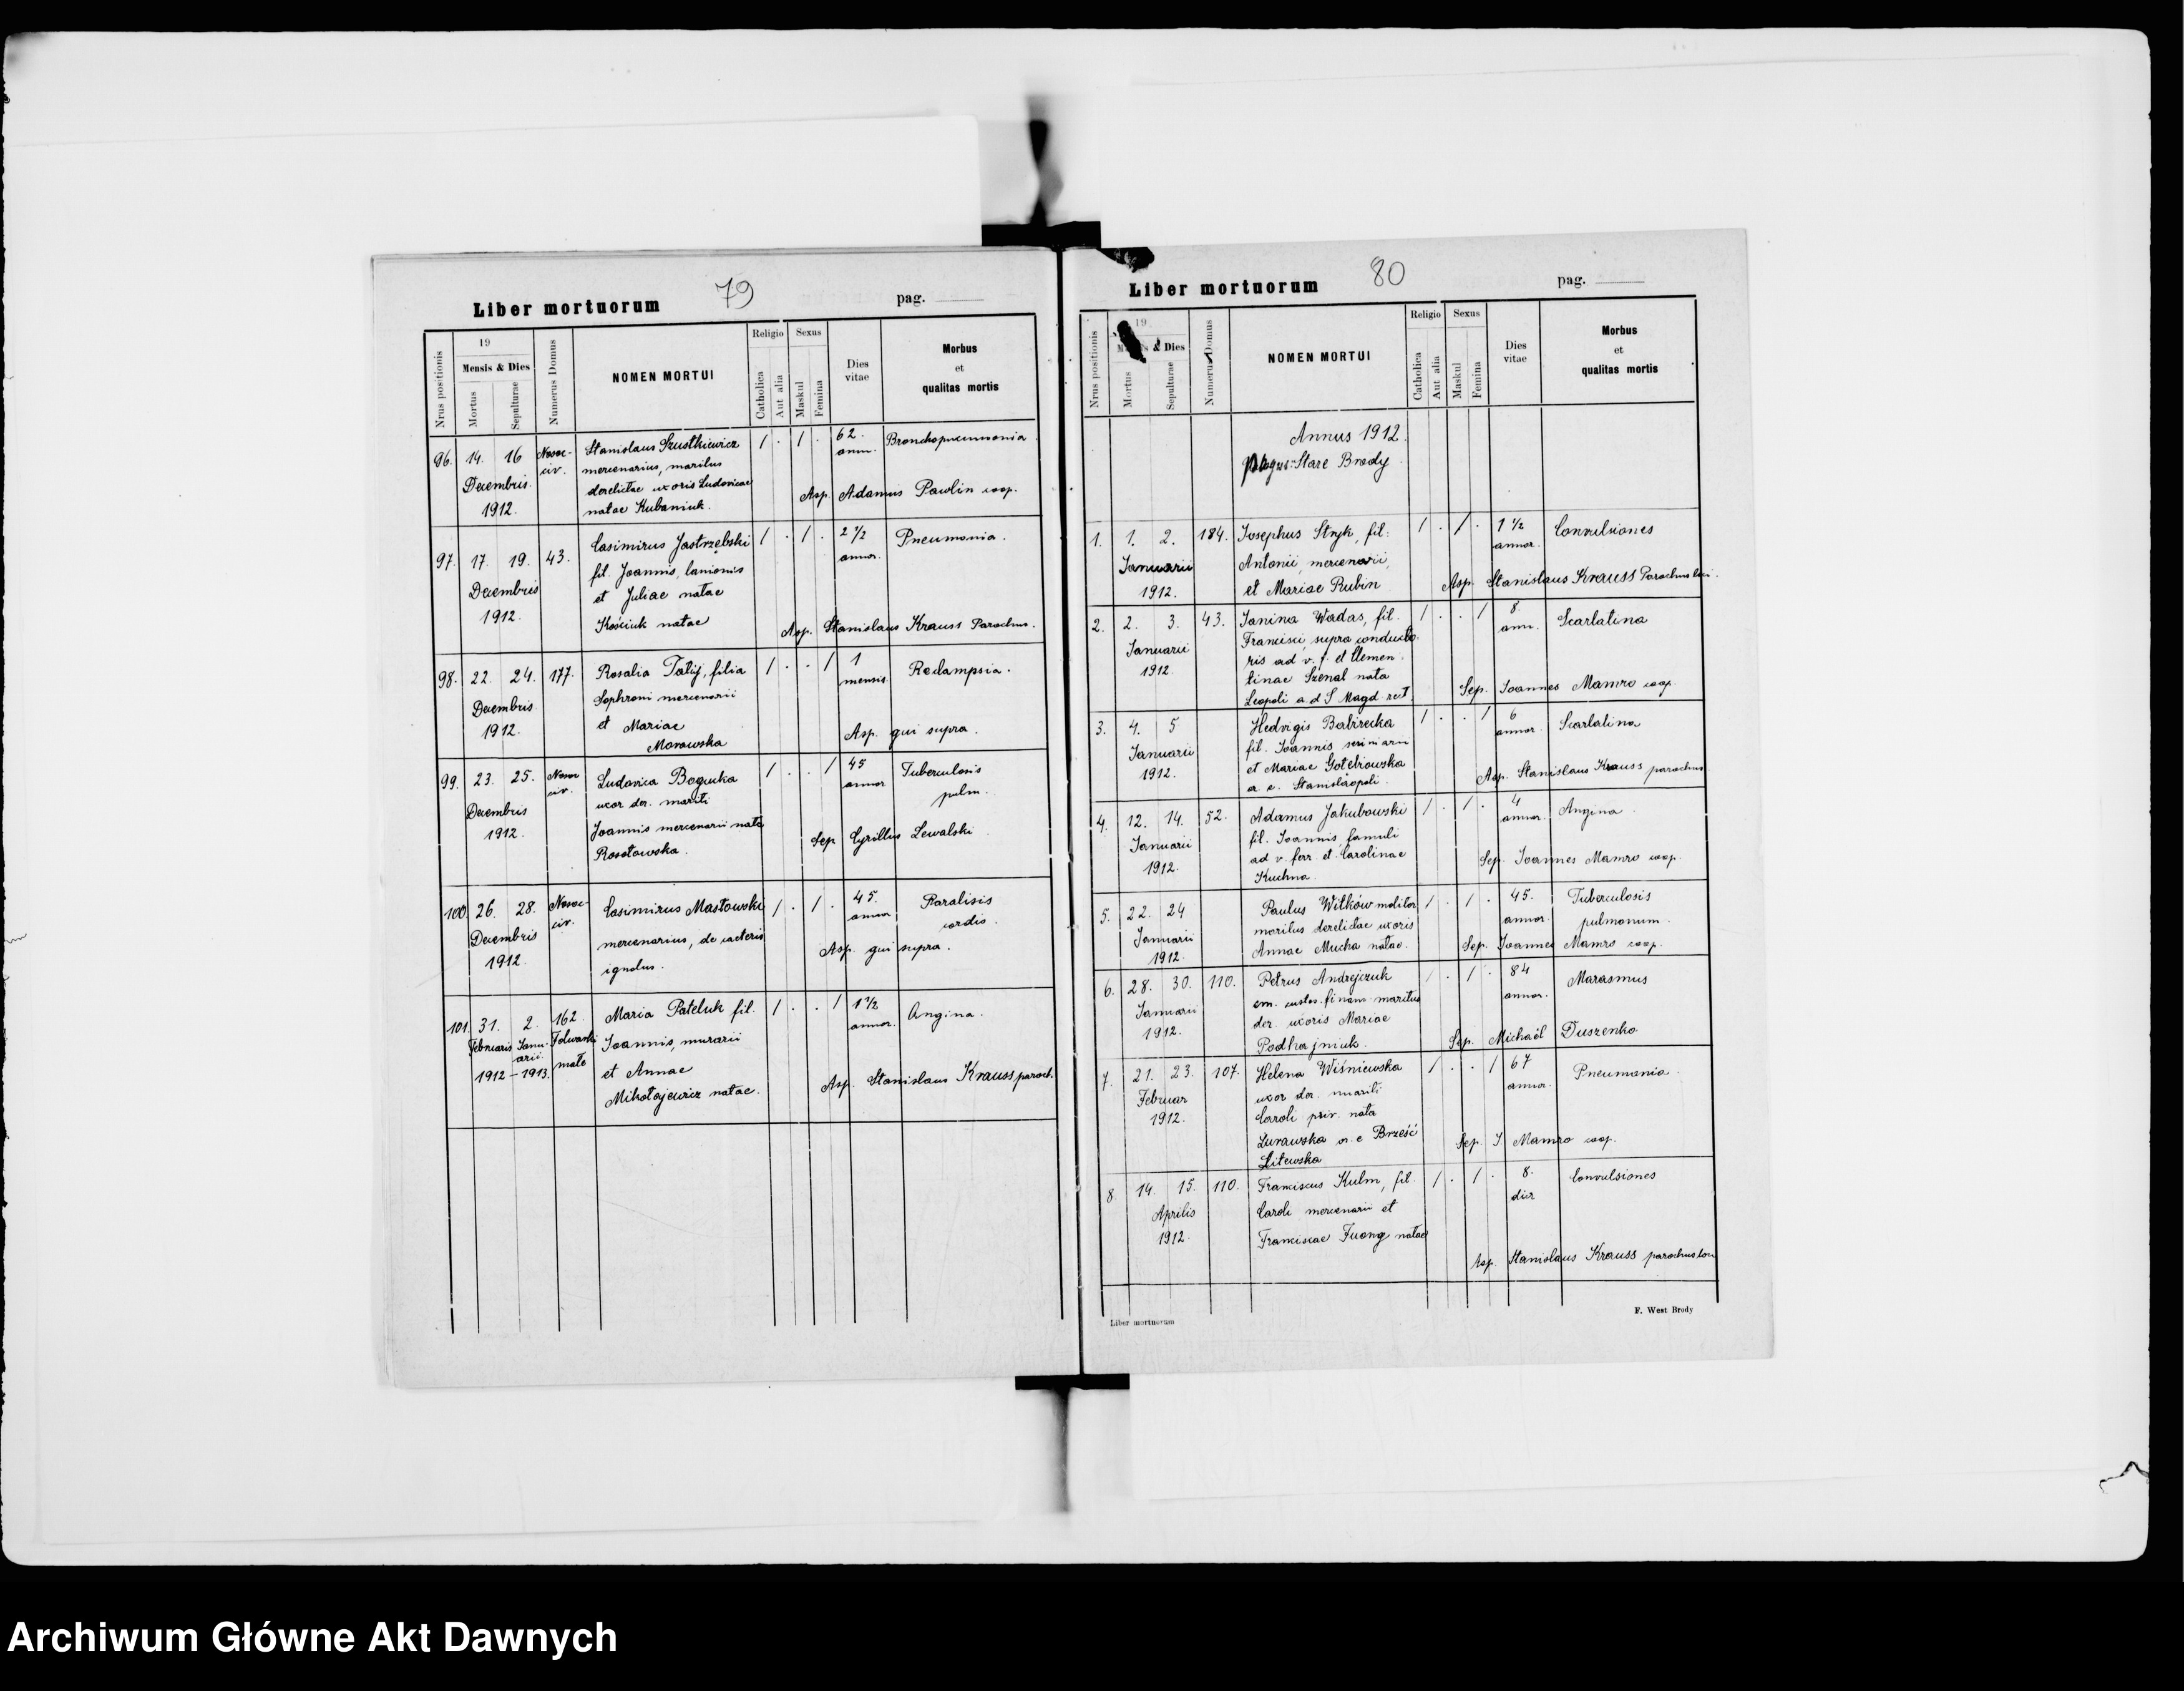 79
Liber mortuorum
pag.
Nrus positionis
19
Mensis & Dies
Mortus
Sepulturae
Numerus Domus
NOMEN MORTUI
Religio
Catholica
Aut alia
Sexus
Maskul
Femina
Dies
vitae
Morbus
et
qualitas mortis
96. 14. 16 Nosoc- Stanislaus Szustkiewicz 1 . 1 . 62. Bronchopneumonia
civ. mercenarius, maritus ann.
Decembris derelictae uxoris Ludovicae Asp. Adamus Pawlin coop.
1912. natae Kubaniuk.
97. 17. 19. 43. Casimirus Jastrzębski 1 . 1 . 2 1/2 Pneumonia.
fil. Joannis, lanionis annor.
Decembris et Juliae natae
1912. Kościuk natae Asp. Stanislaus Krauss Parochus.
98. 22. 24. 177. Rosalia Tatij, filia 1 . . 1 1 Reclampsia.
Sophroni mercenarii mensis
Decembris et Mariae Asp. qui supra.
1912. Morawska
99. 23. 25. Nosoc civ. Ludovica Bogucka 1 . . 1 45 Tuberculosis
uxor der. mariti annor pulm.
Decembris Joannis mercenarii nata
1912. Rosołowska. Sep Cyrillus Lewalski
100. 26. 28. Nosoc- civ. Casimirus Masłowski 1 . 1 . 45. Paralisis
Decembris mercenarius, de caeteris annor cordis.
1912. ignotus. Asp. qui supra.
101. 31. 2. 162. Maria Pateluk fil. 1 . . 1 1 1/2 Angina.
Februaris Janu- Folwarki Joannis, murarii annor.
arii. małe
1912 – 1913. et Annae Asp. Stanislaus Krauss paroch.
Mikołajewicz natae.
80
Liber mortuorum
pag.
Nrus positionis
19
& Dies
Mortus
Sepulturae
Numerus Domus
NOMEN MORTUI
Religio
Catholica
Aut alia
Sexus
Maskul
Femina
Dies
vitae
Morbus
et
qualitas mortis
Annus 1912.
pagus: Stare Brody
1. 1. 2. 184. Josephus Stryk, fil. 1 . 1 . 1 1/2 Convulsiones
Januarii Antonii, mercenarii, annor.
1912. et Mariae Rubin Asp. Stanislaus Krauss Parochus loci.
2. 2. 3. 43. Janina Wadas, fil. 1 . . 1 8. Scarlatina
Francisci, supra conducto- ann.
Januarii ris ad v. f. et Clemen-
1912. tinae Szenal nata
Leopoli a d S Magd rect. Sep. Joannes Mamro coop.
3. 4. 5 Hedvigis Babirecka 1 . . 1 6 Scarlatina
Januarii fil. Joannis annor.
1912. et Mariae Asp. Stanislaus Krauss parochus
Stanislaopoli.
4. 12. 14. 52. Adamus Jakubowski 1 . 1 . 4 Angina.
Januarii fil. Joannis famuli annor.
1912. ad v. ferr. et Carolinae Sep. Joannes Mamro coop.
Kuchna.
5. 22. 24 Paulus Witków molitor 1 . 1 . 45. Tuberculosis
Januarii maritus derelictae uxoris annor. pulmonum.
1912. Annae Mucha natae. Sep. Joannes Mamro coop.
6. 28. 30. 110. Petrus Andrejczuk 1 . 1 . 84 Marasmus
Januarii em. custos. finans maritus annor.
1912. der. uxoris Mariae
Podhajniuk. Sep. Michaël Duszenko
7. 21. 23. 107. Helena Wiśniewska 1 . . 1 67 Pneumonia.
Februar uxor der. mariti annor.
1912. Caroli priv. nata
Żurawska or. e Brześć Sep. J. Mamro coop.
Litewska
8. 14. 15. 110. Franciscus Kulm, fil. 1 . 1 . 8. Convulsiones
Aprilis Caroli mercenarii et dier
1912. Franciscae Fuong natae
Asp. Stanislaus Krauss parochus loci
Liber mortuorum
F. West Brody
Archiwum Główne Akt Dawnych